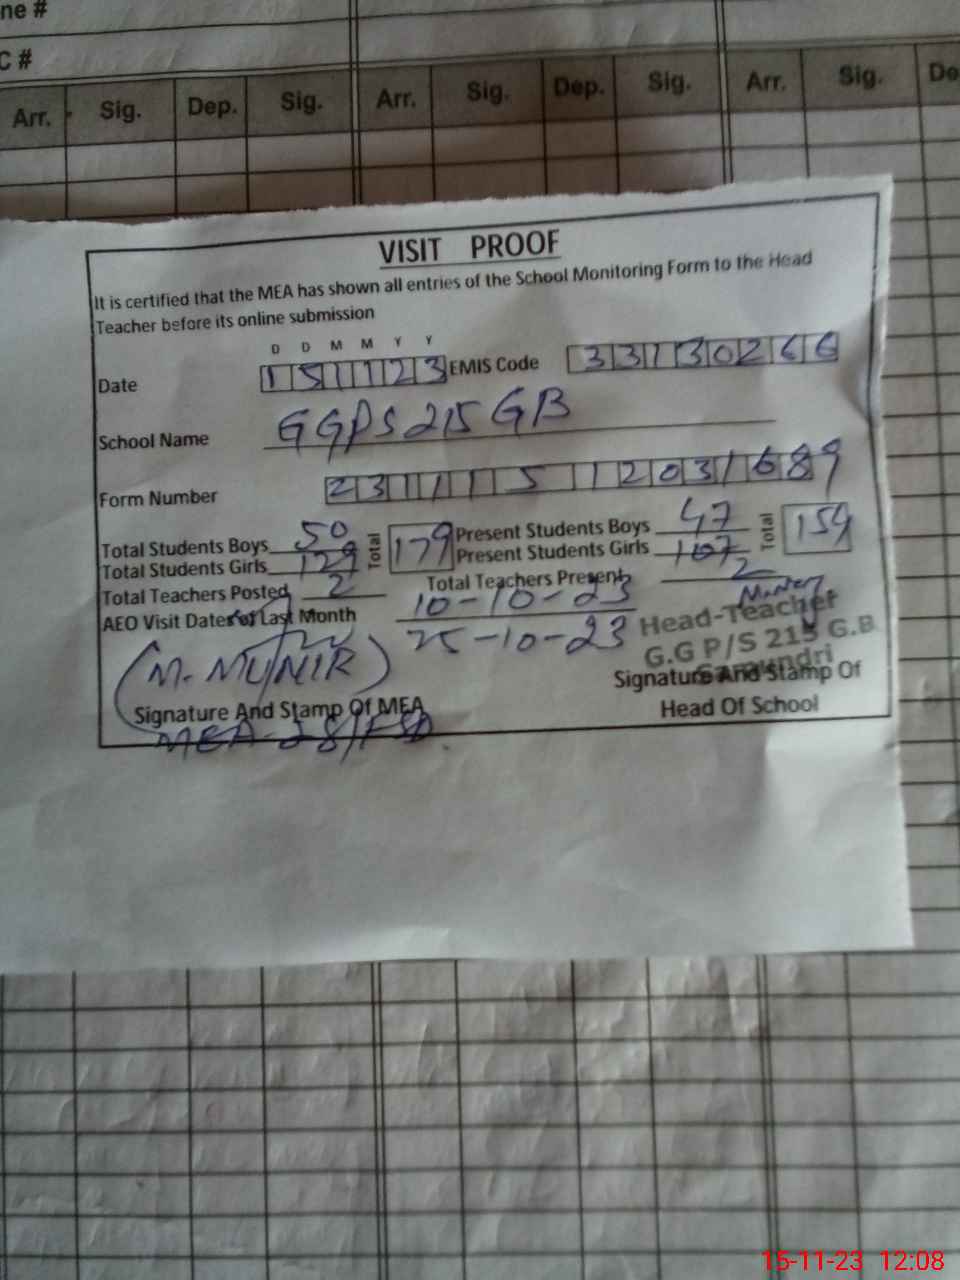 ne #
C #
Arr. Sig. Dep. Sig. Arr. Sig. Dep. Sig. Arr. Sig. De
VISIT PROOF
It is certified that the MEA has shown all entries of the School Monitoring Form to the Head
Teacher before its online submission
D D M M Y Y
Date 151123 EMIS Code 33130266
School Name GGPS 215 GB
Form Number 23111512031689
Total Students Boys 50 Total 179 Present Students Boys 47 Total 154
Total Students Girls 129 Present Students Girls 107
Total Teachers Posted 2 Total Teachers Present 2
AEO Visit Dates of Last Month 10-10-23
25-10-23
Head-Teacher
G.G P/S 215 G.B
Samundri
(M. MUNIR)
Signature And Stamp Of MEA
MEA-28/FSD
Signature And Stamp Of
Head Of School
15-11-23 12:08